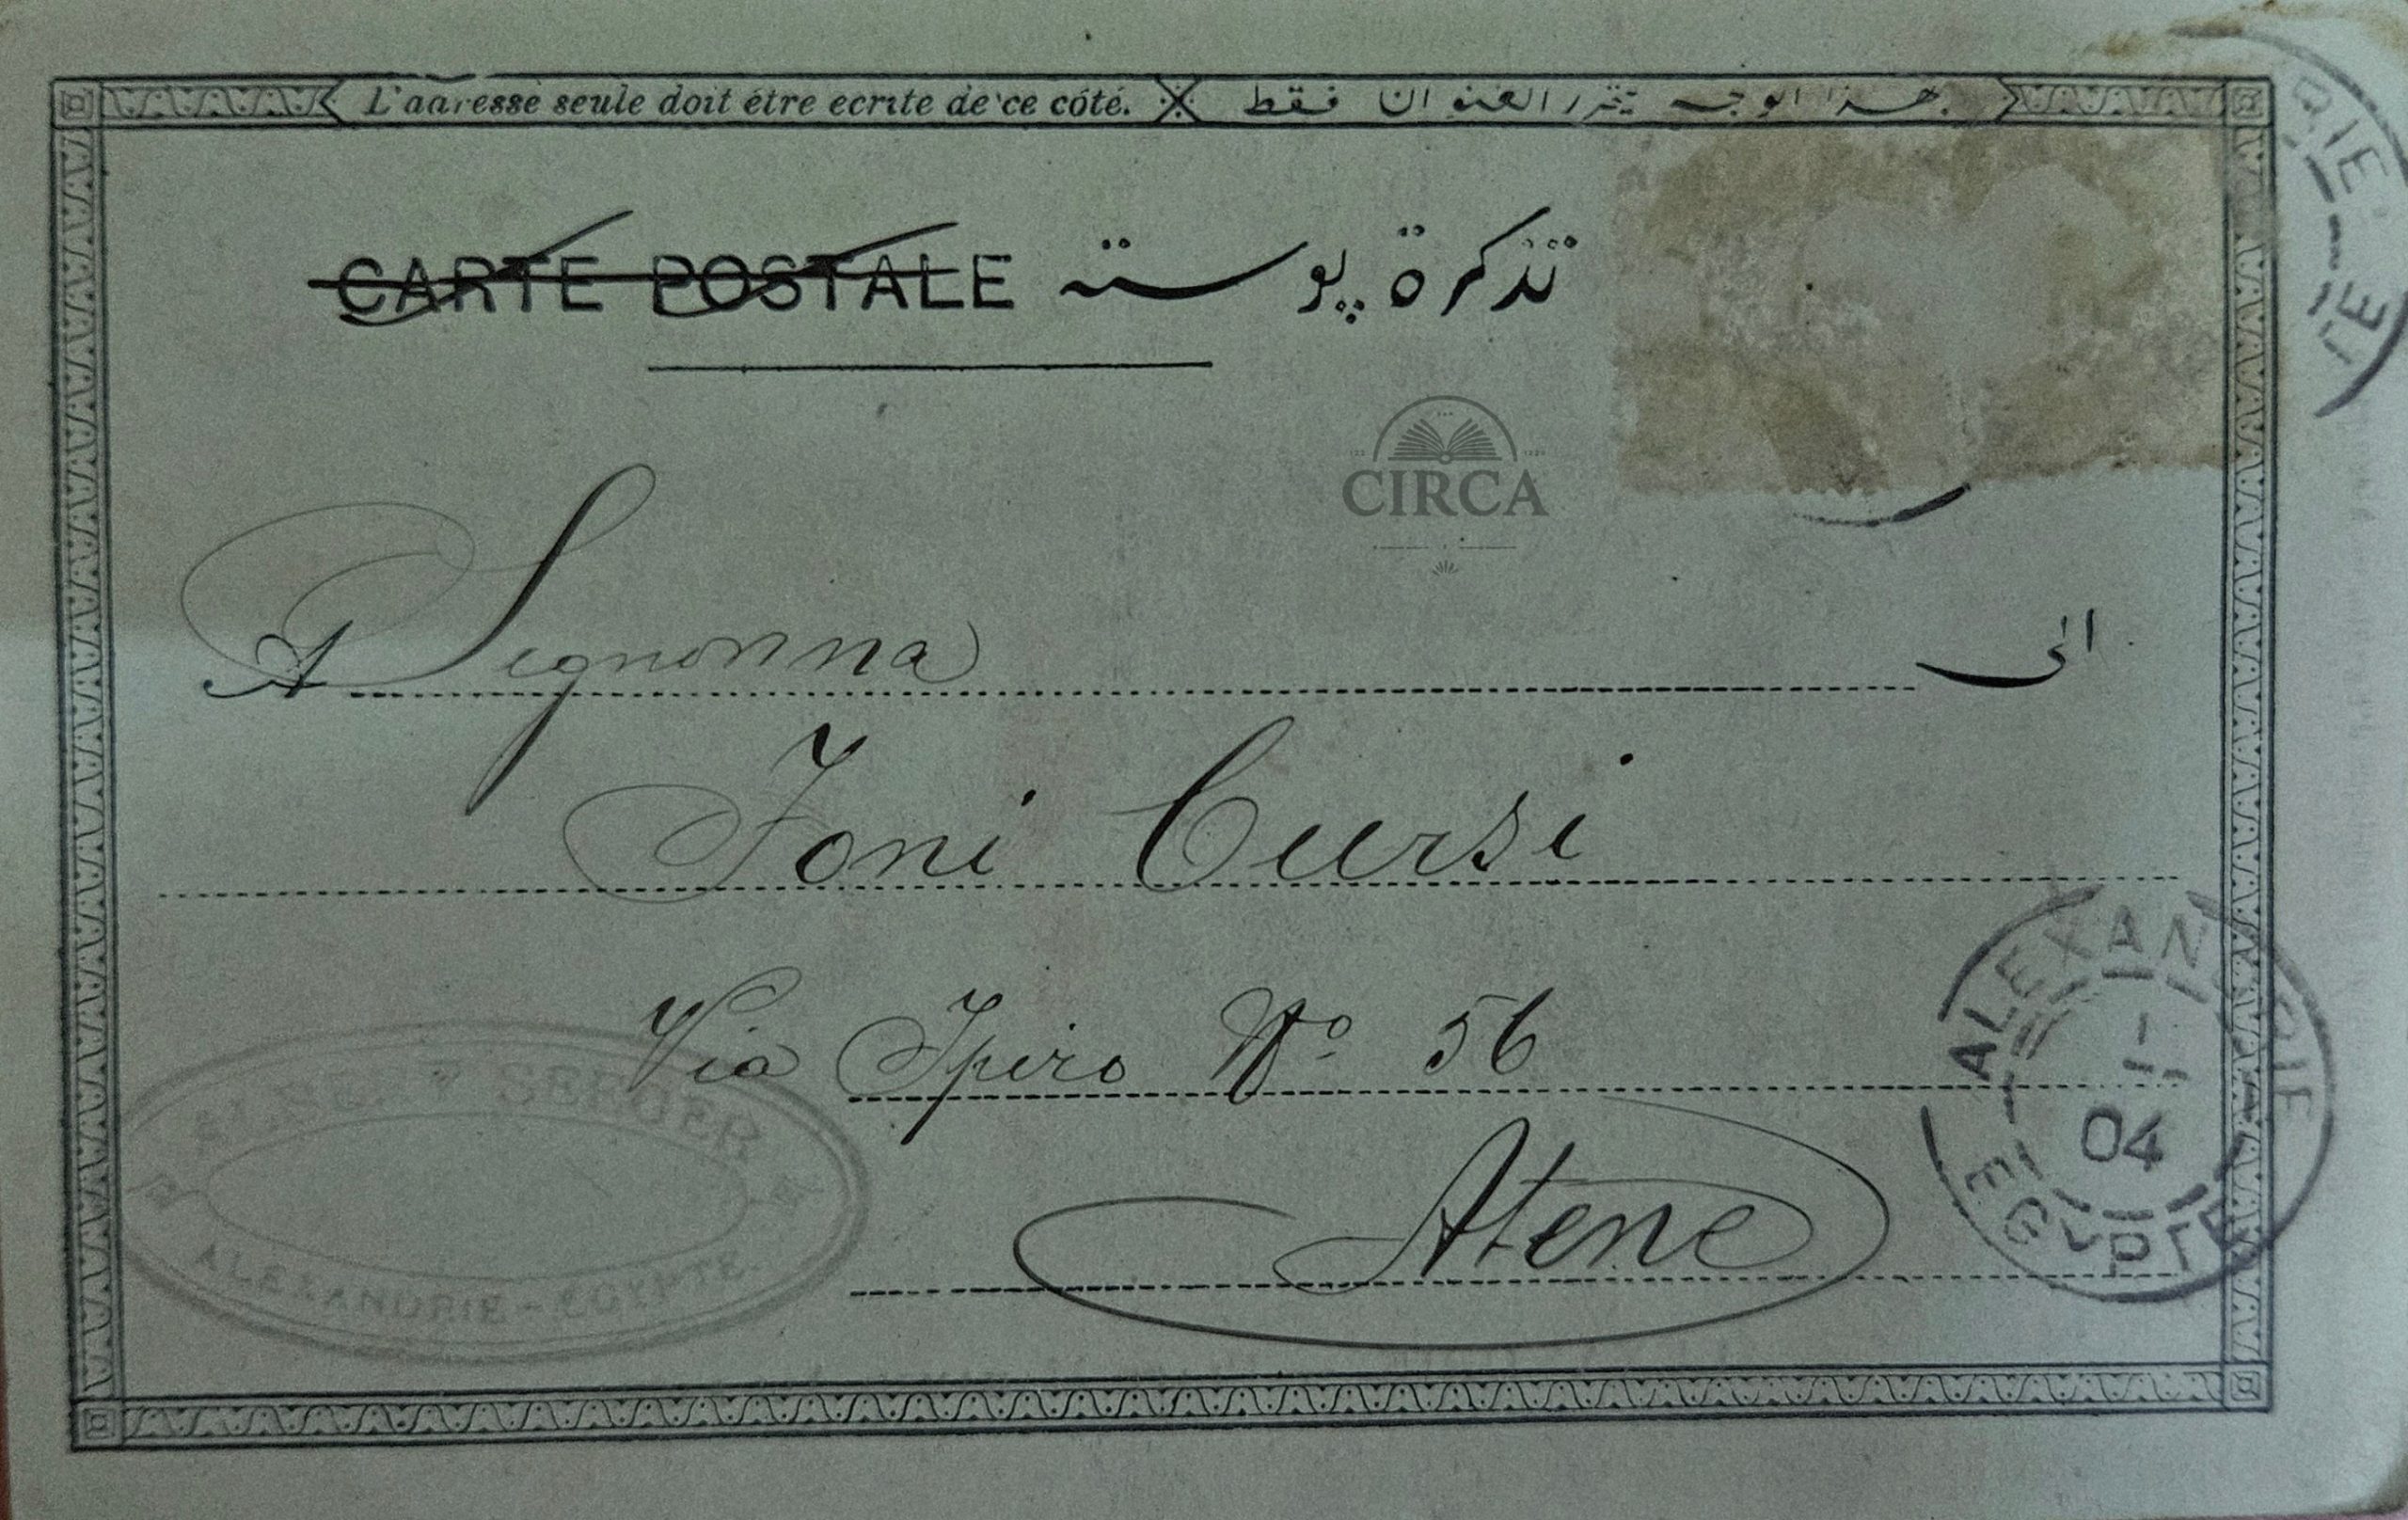 L'adresse seule doit être ecrite de ce côté. هذا الوجه يحرر العنوان فقط
CARTE POSTALE تذكرة پوسته
CIRCA
A Signorina الى
Joni Cursi
Via Ipiro Nº 56
Atene
ALEXANDRIE
EGYPTE
04
ALEXANDRIE - EGYPTE
RIE
TE